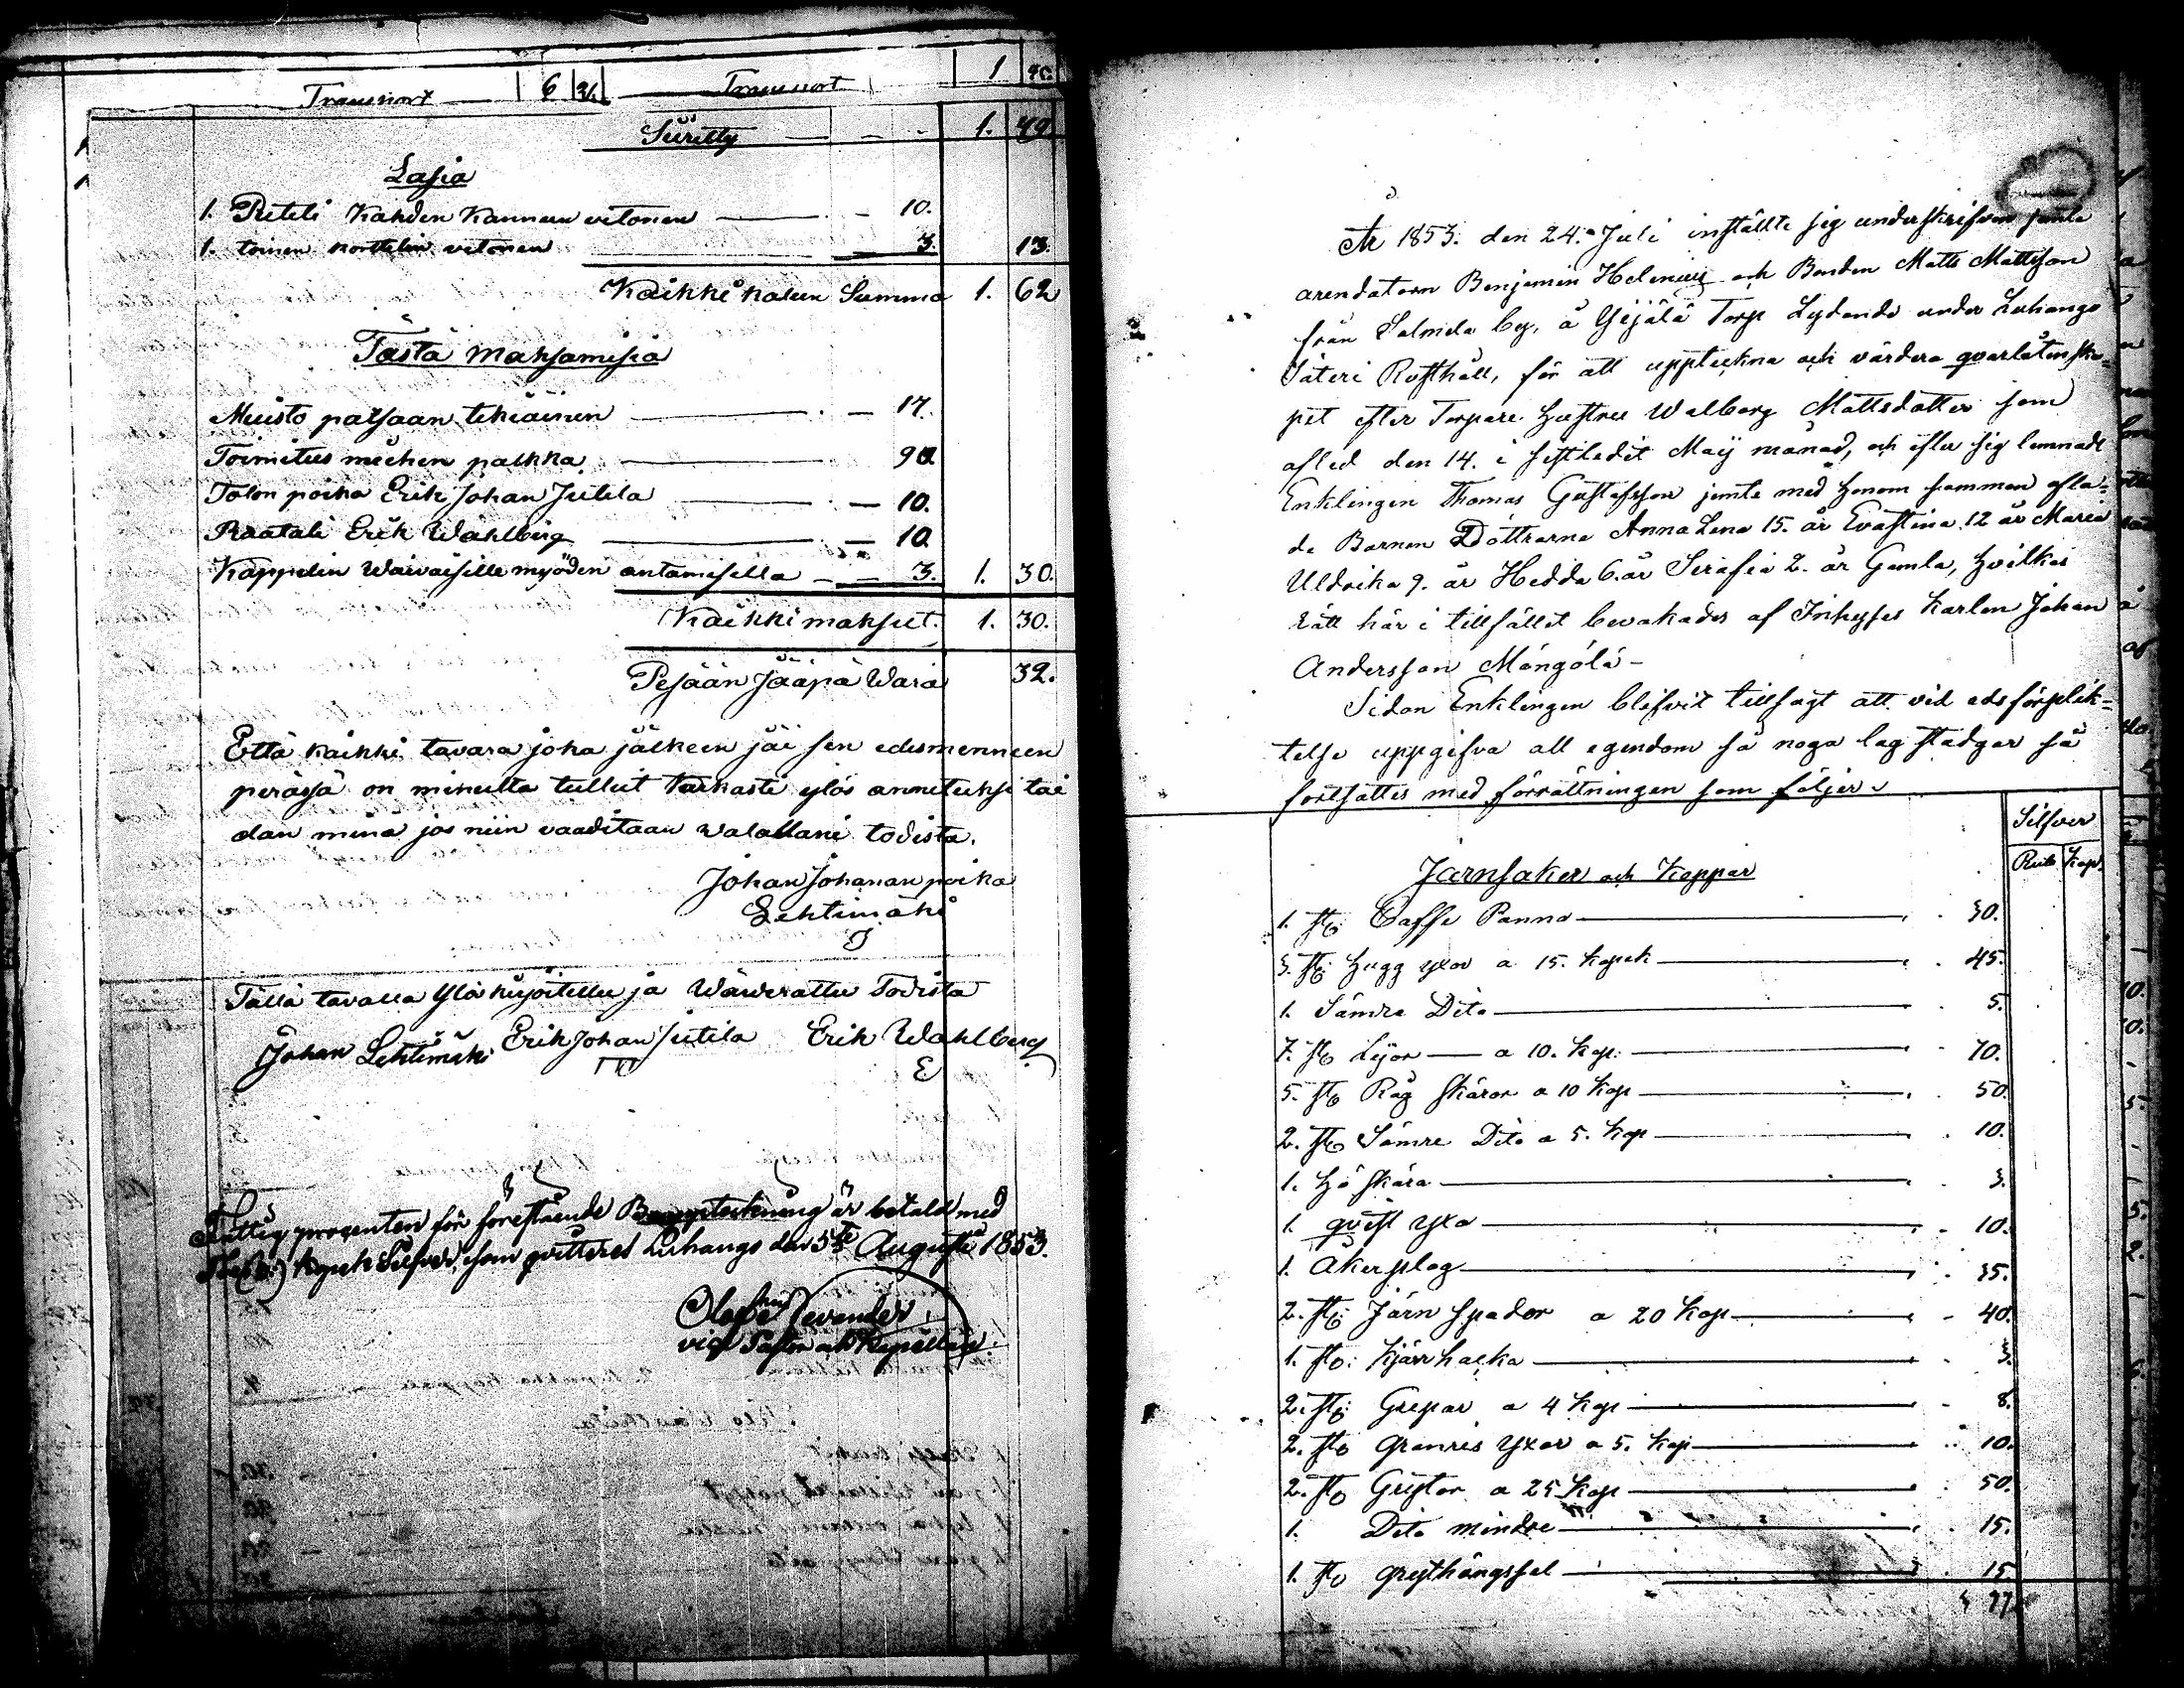 Transport 6 Transport 1
Siiretty 1. 49
Lasia
1. Puteli Kahden Kannun vetonen 10.
1. toinen korttelin vetonen 3. 13.
Kaikki kalun Summa 1. 62
Tästä maksamisia
Muisto patsaan tekiäinen 17.
Toimitus miehen palkka 90.
Talon poika Erik Johan Jutila 10.
Räätäli Erik Wahlberg 10
Kappelin Waivaisille myöden antamisella 3. 1. 30.
Kaikki maksut. 1. 30.
Pesään Jääpä Wara 32.
Että kaikki tavara joka jälkeen jäi sen edesmenneen
perässä on minulta tullut tarkasti ylös annetuksi tai
dan minä jos niin vaaditaan walallani todista.
Johan Johanan poika
Lehtimäki
Tällä tavalla Ylös kirjoitellu ja Wärderattu Todista
Johan Lehtimäki Erik Johan Jutila Erik Wahlberg
E
Fattig procenten för förestående Bouppteckning är betald med
Kopek Silfver, som qvitteras Luhango den 5te Augusti 1853.
vice Pastor och Kapellan.
År 1853. den 24. Juli inställte sig underskrifven jemte
arendatorn Benjamin Helenius och Bonden Matts Mattsson
från Salmela by, å Yijälä Torp Lydande under Luhango
Säteri Rusthåll, för att uppteckna och värdera qvarlåtenska-
pet efter Torpare hustru Walborg Mattsdotter som
afled den 14. i sistledit Maij månad, och efter sig lemnade
Enklingen Thomas Gustafsson jemte med honom samman afla-
de Barnen Döttrarne Anna Lena 15. år Evastina 12 år Maria
Uldrika 9. år Hedda 6. år Serafia 2. år Gamla, hvilkas
rätt här i tillfället bevakades af Inhyses Karlen Johan
Andersson Mångålä-
Sidan Enklingen blifvit tillsagt att vid eds förplik-
telse uppgifva all egendom så noga lag stadgar så
fortsattes med förrättningen som följer.
Silfver
Rub Kop.
Järnsaker och Koppar
1. st Caffe Panna 30.
3. st hugg yxor a 15. kopek 45.
1. Sämre Dito 5.
7. st Lijor a 10. Kop. 70.
5. st Råg skäror a 10 Kop 50.
2. st Sämre Dito a 5. Kop 10.
1. hö skära 3.
1. qvist yxa 10.
1. Åkerplog 35.
2. st Järn spador a 20 Kop 40.
1. st Kjärrhacka 3.
2. st Grepar a 4 Kop 8.
2. st granris Yxor a 5. Kop 10.
2. st Grytor a 25 Kop 50.
1. Dito mindre 15.
1. st grythängsel 15